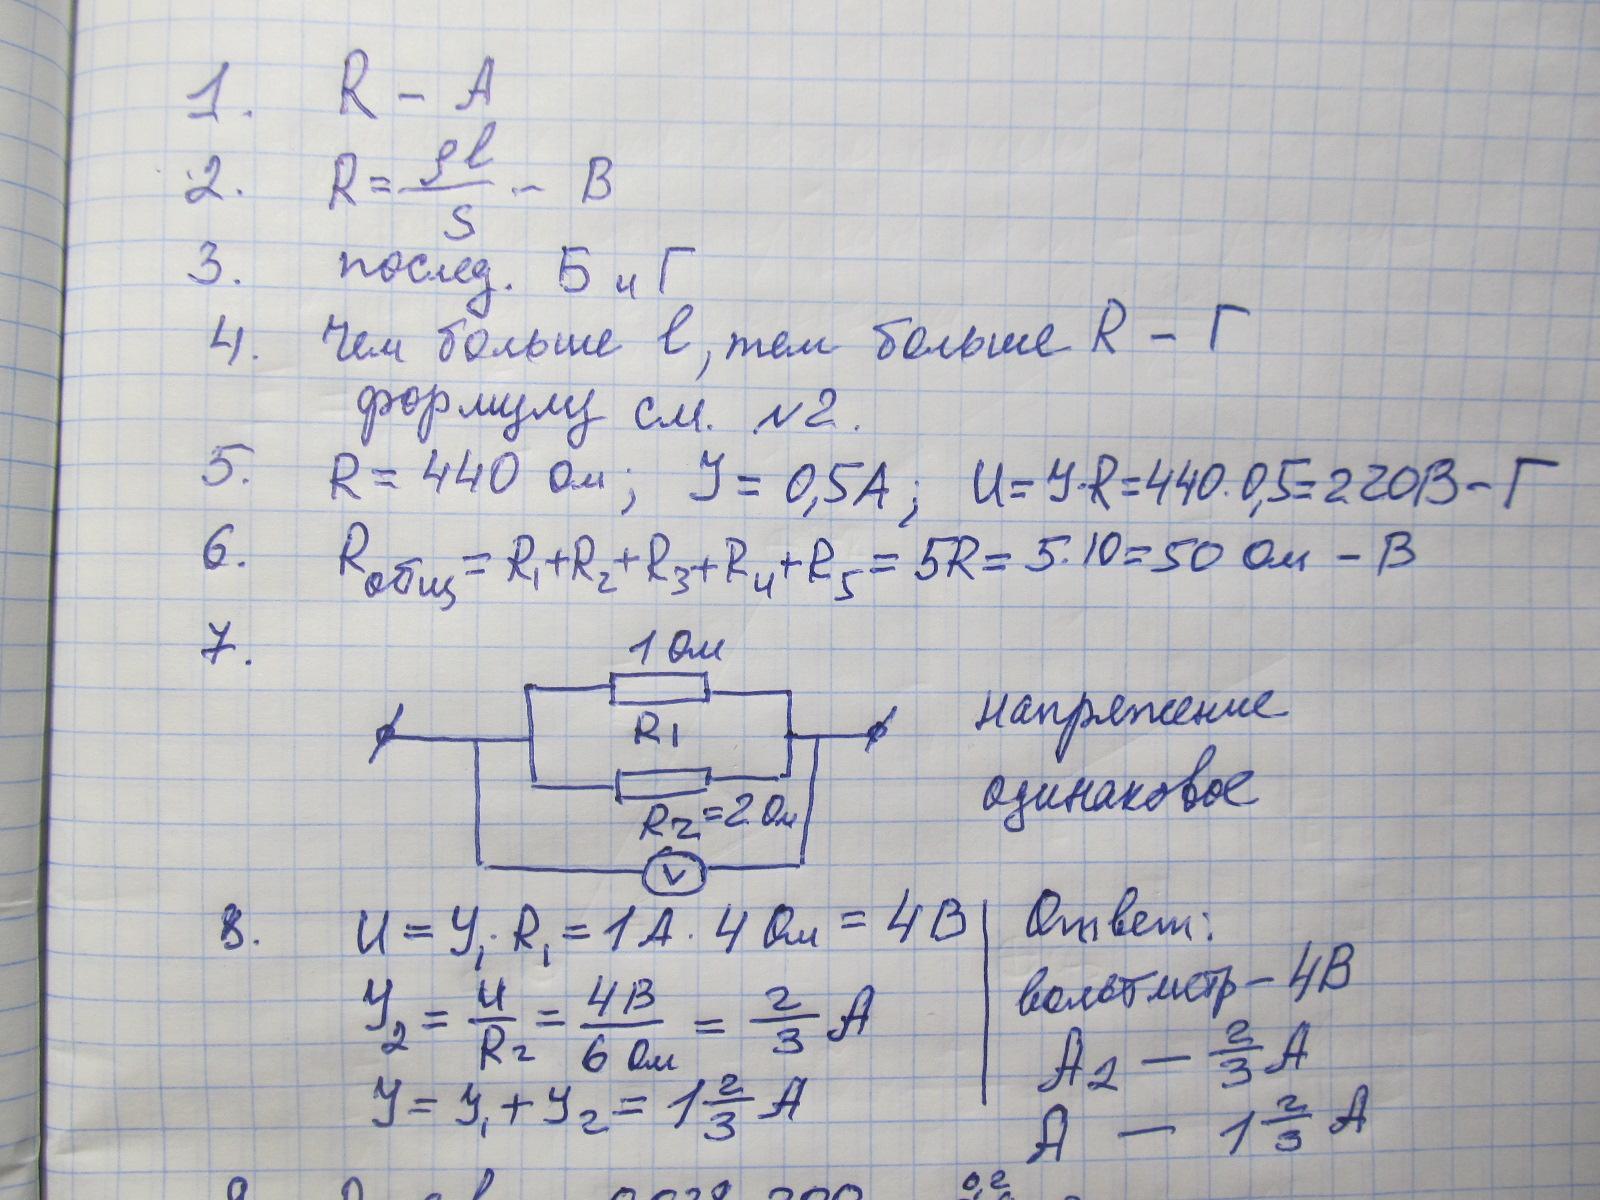 1. R - А
2. R = ρl/S - В
3. послед. Б и Г
4. Чем больше l, тем больше R - Г
формулу см. №2.
5. R = 440 Ом; У = 0,5А; U = У·R = 440·0,5 = 220В - Г
6. Rобщ = R1 + R2 + R3 + R4 + R5 = 5R = 5·10 = 50 Ом - В
7.
1 Ом
R1
R2 = 2 Ом
V
напряжение
одинаковое
8. U = У1·R1 = 1А·4 Ом = 4В
У2 = U/R2 = 4В/6 Ом = 2/3 А
У = У1 + У2 = 1 2/3 А
Ответ:
вольтметр - 4В
А2 - 2/3 А
А - 1 2/3 А